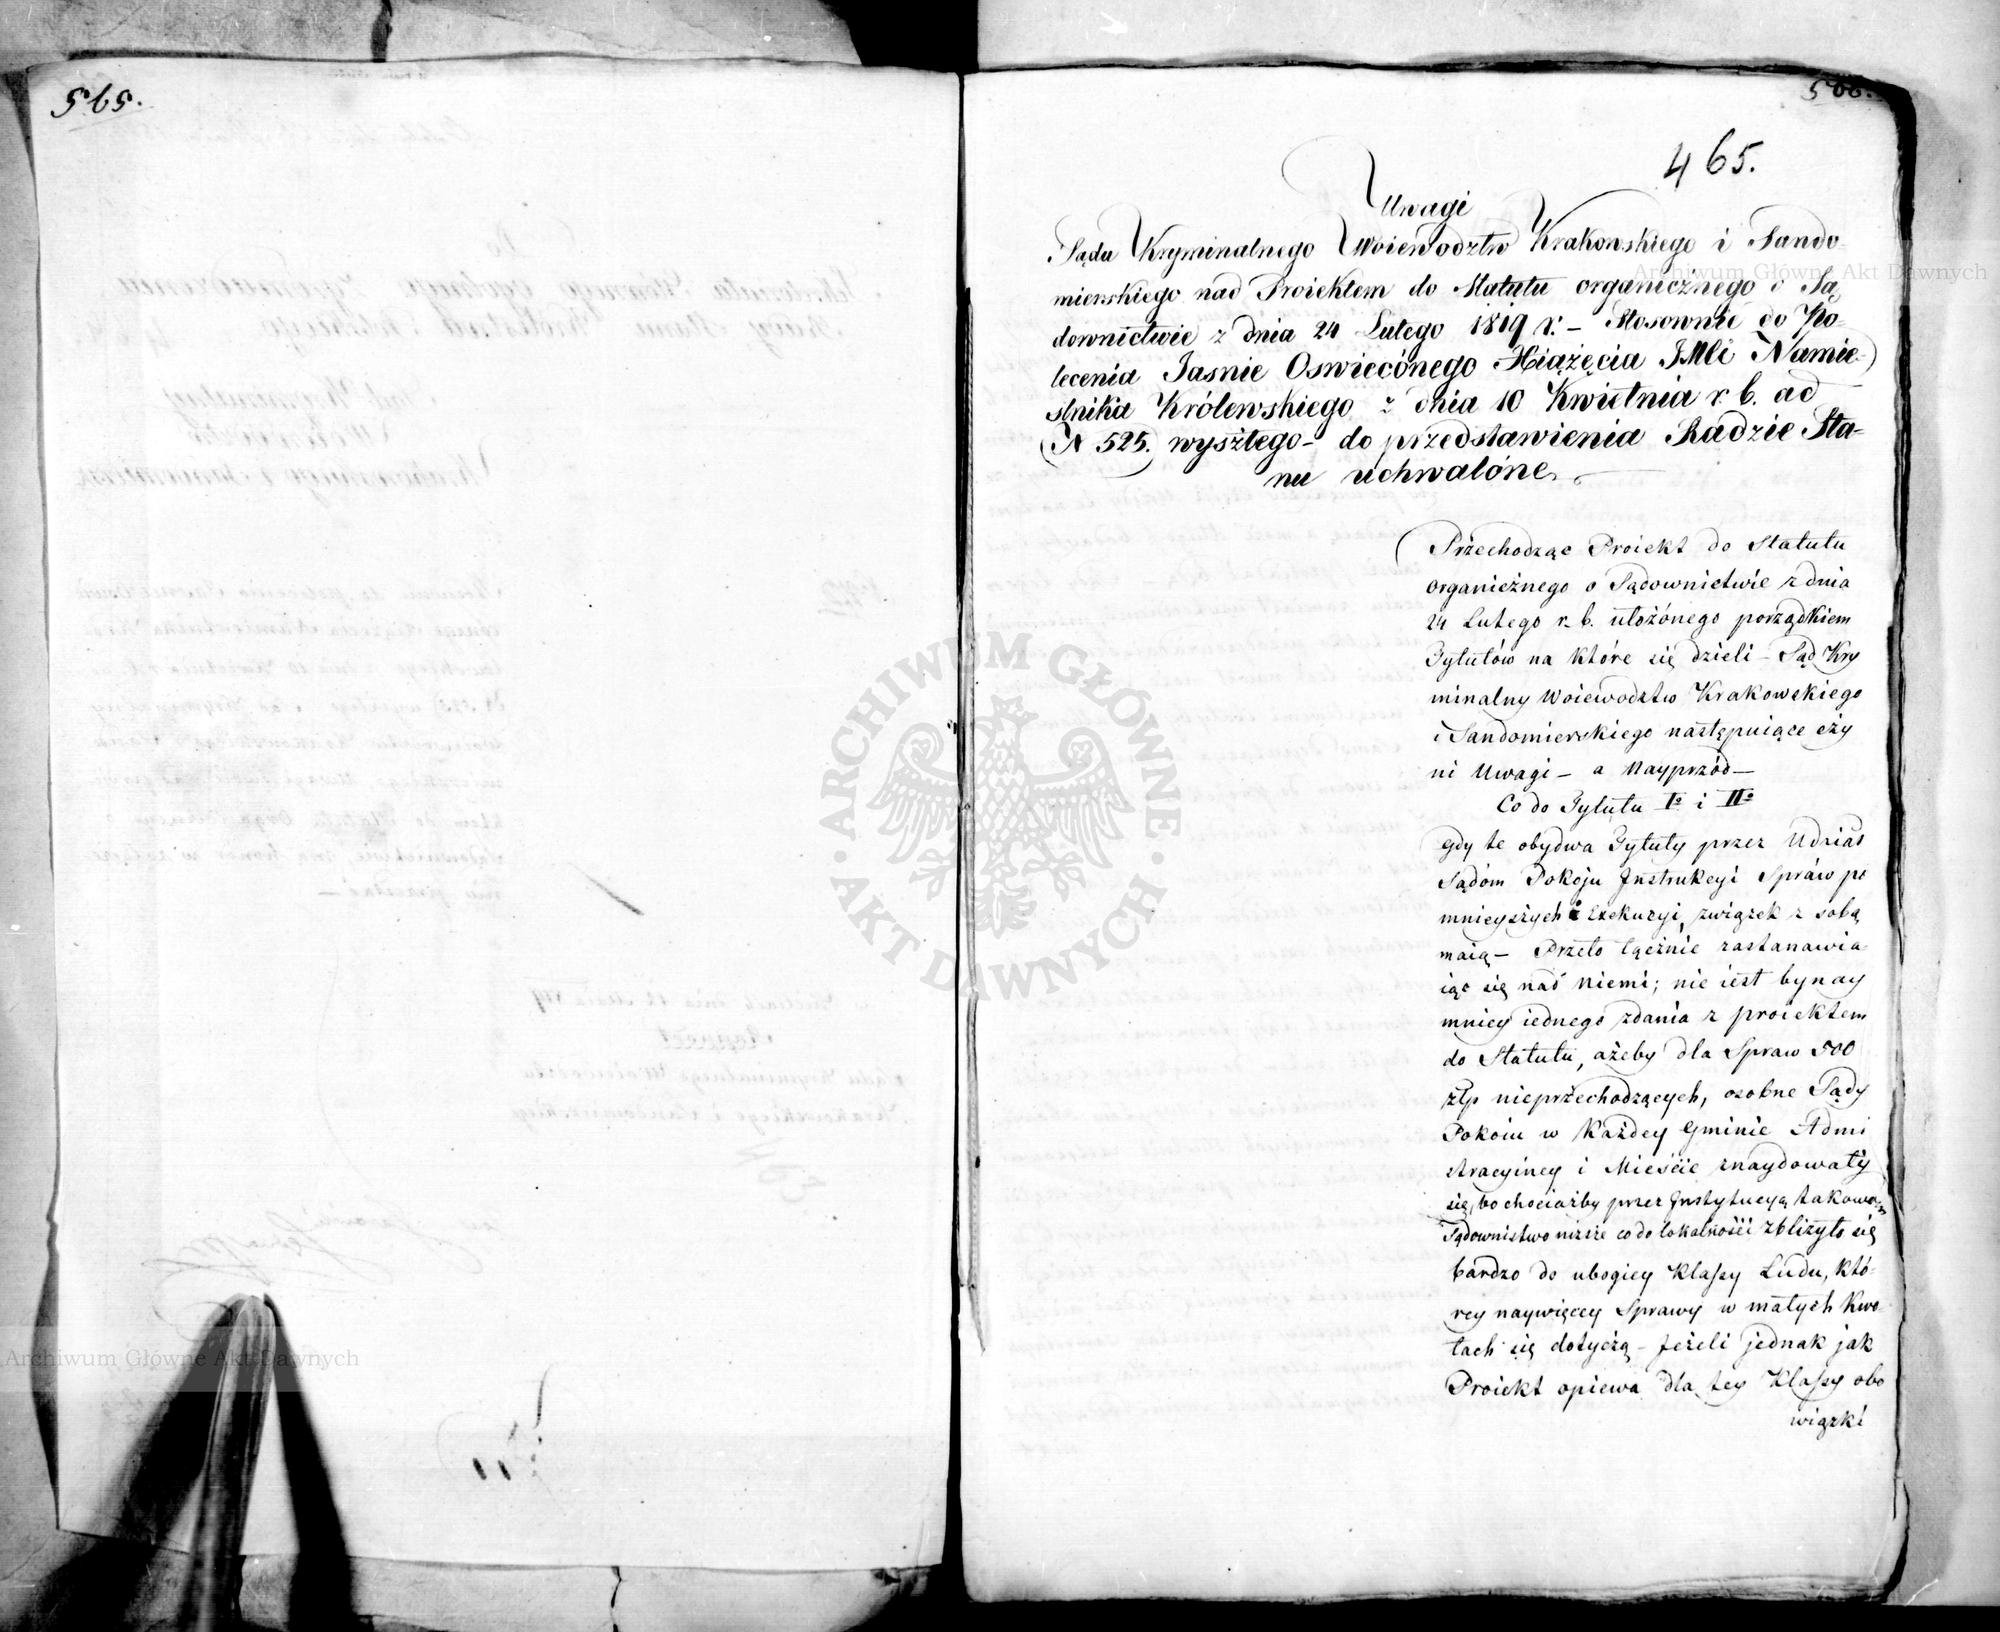 565.
566.
465.
Uwagi
Sądu Kryminalnego Woiewodztw Krakowskiego i Sando-
mierskiego nad Proiektem do Statutu organicznego o Są
downictwie z dnia 24 Lutego 1819 r. – Stosownie do Po-
lecenia Jasnie Oswieconego Xiążęcia JMci Namie-
stnika Królewskiego z dnia 10 Kwietnia r. b. ad
N 525. wyszłego – do przedstawienia Radzie Sta-
nu uchwalóne.
Przechodząc Proiekt do Statutu
organicznego o Sądownictwie z dnia
24 Lutego r. b. ułożónego porządkiem
Tytułów na które się dzieli – Sąd Kry
minalny Woiewodztw Krakowskiego
i Sandomierskiego następuiące czy
ni Uwagi – a Nayprzód –
Co do Tytułu Iº i IIº
gdy te obydwa Tytuły przez Udział
Sądóm Pokoju Instrukcyi Spráw po
mnieyszych i Exekucyi, związek z sobą
maią – Przeto łącznie zastanawia
iąc się nad niemi; nie iest bynay
mniey iednego zdania z proiektem
do Statutu, ażeby dla Spraw 500
złp nieprzechodzących, osobne Sądy
Pokoiu w Każdey Gminie Admi
stracyiney i Mieście znaydowały
się, bo chociażby przez Instytucyą takową
Sądownictwo niższe co do lokalności zbliżyło się
bardzo do ubogiey Klassy Ludu, któ-
rey naywięcey Sprawy w małych Kwo-
tach się dotyczą – Jeżeli jednak jak
Proiekt opiewa dla tey Klassy obo
wiązki
Archiwum Główne Akt Dawnych
ARCHIWUM GŁÓWNE
AKT DAWNYCH
Archiwum Główne Akt Dawnych